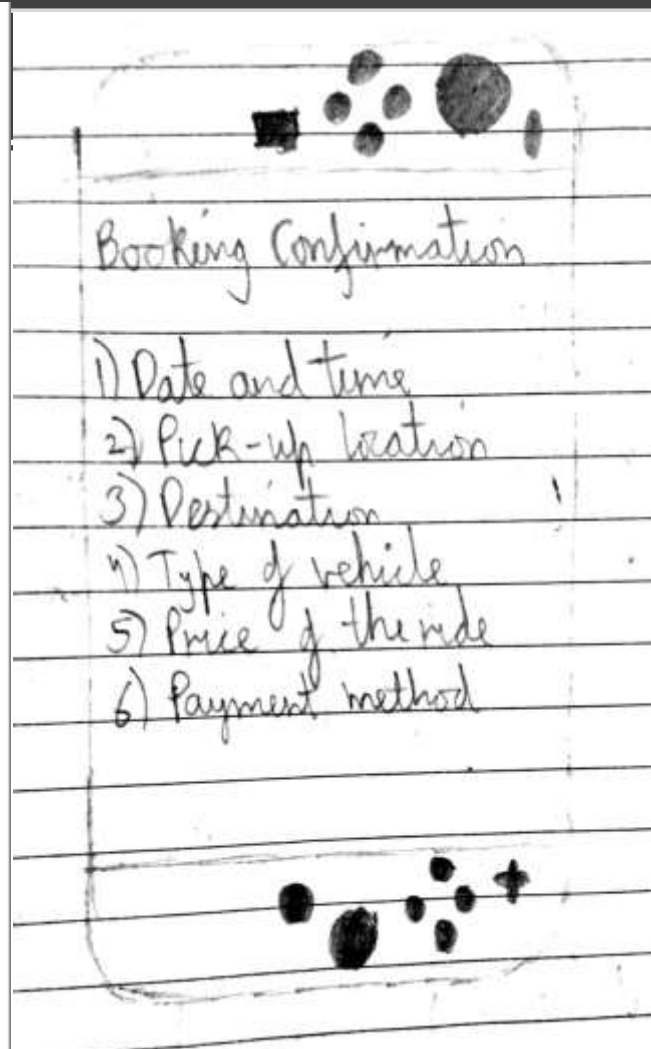 Booking Confirmation
1) Date and time
2) Pick-up location
3) Destination
4) Type of vehicle
5) Price of the ride
6) Payment method